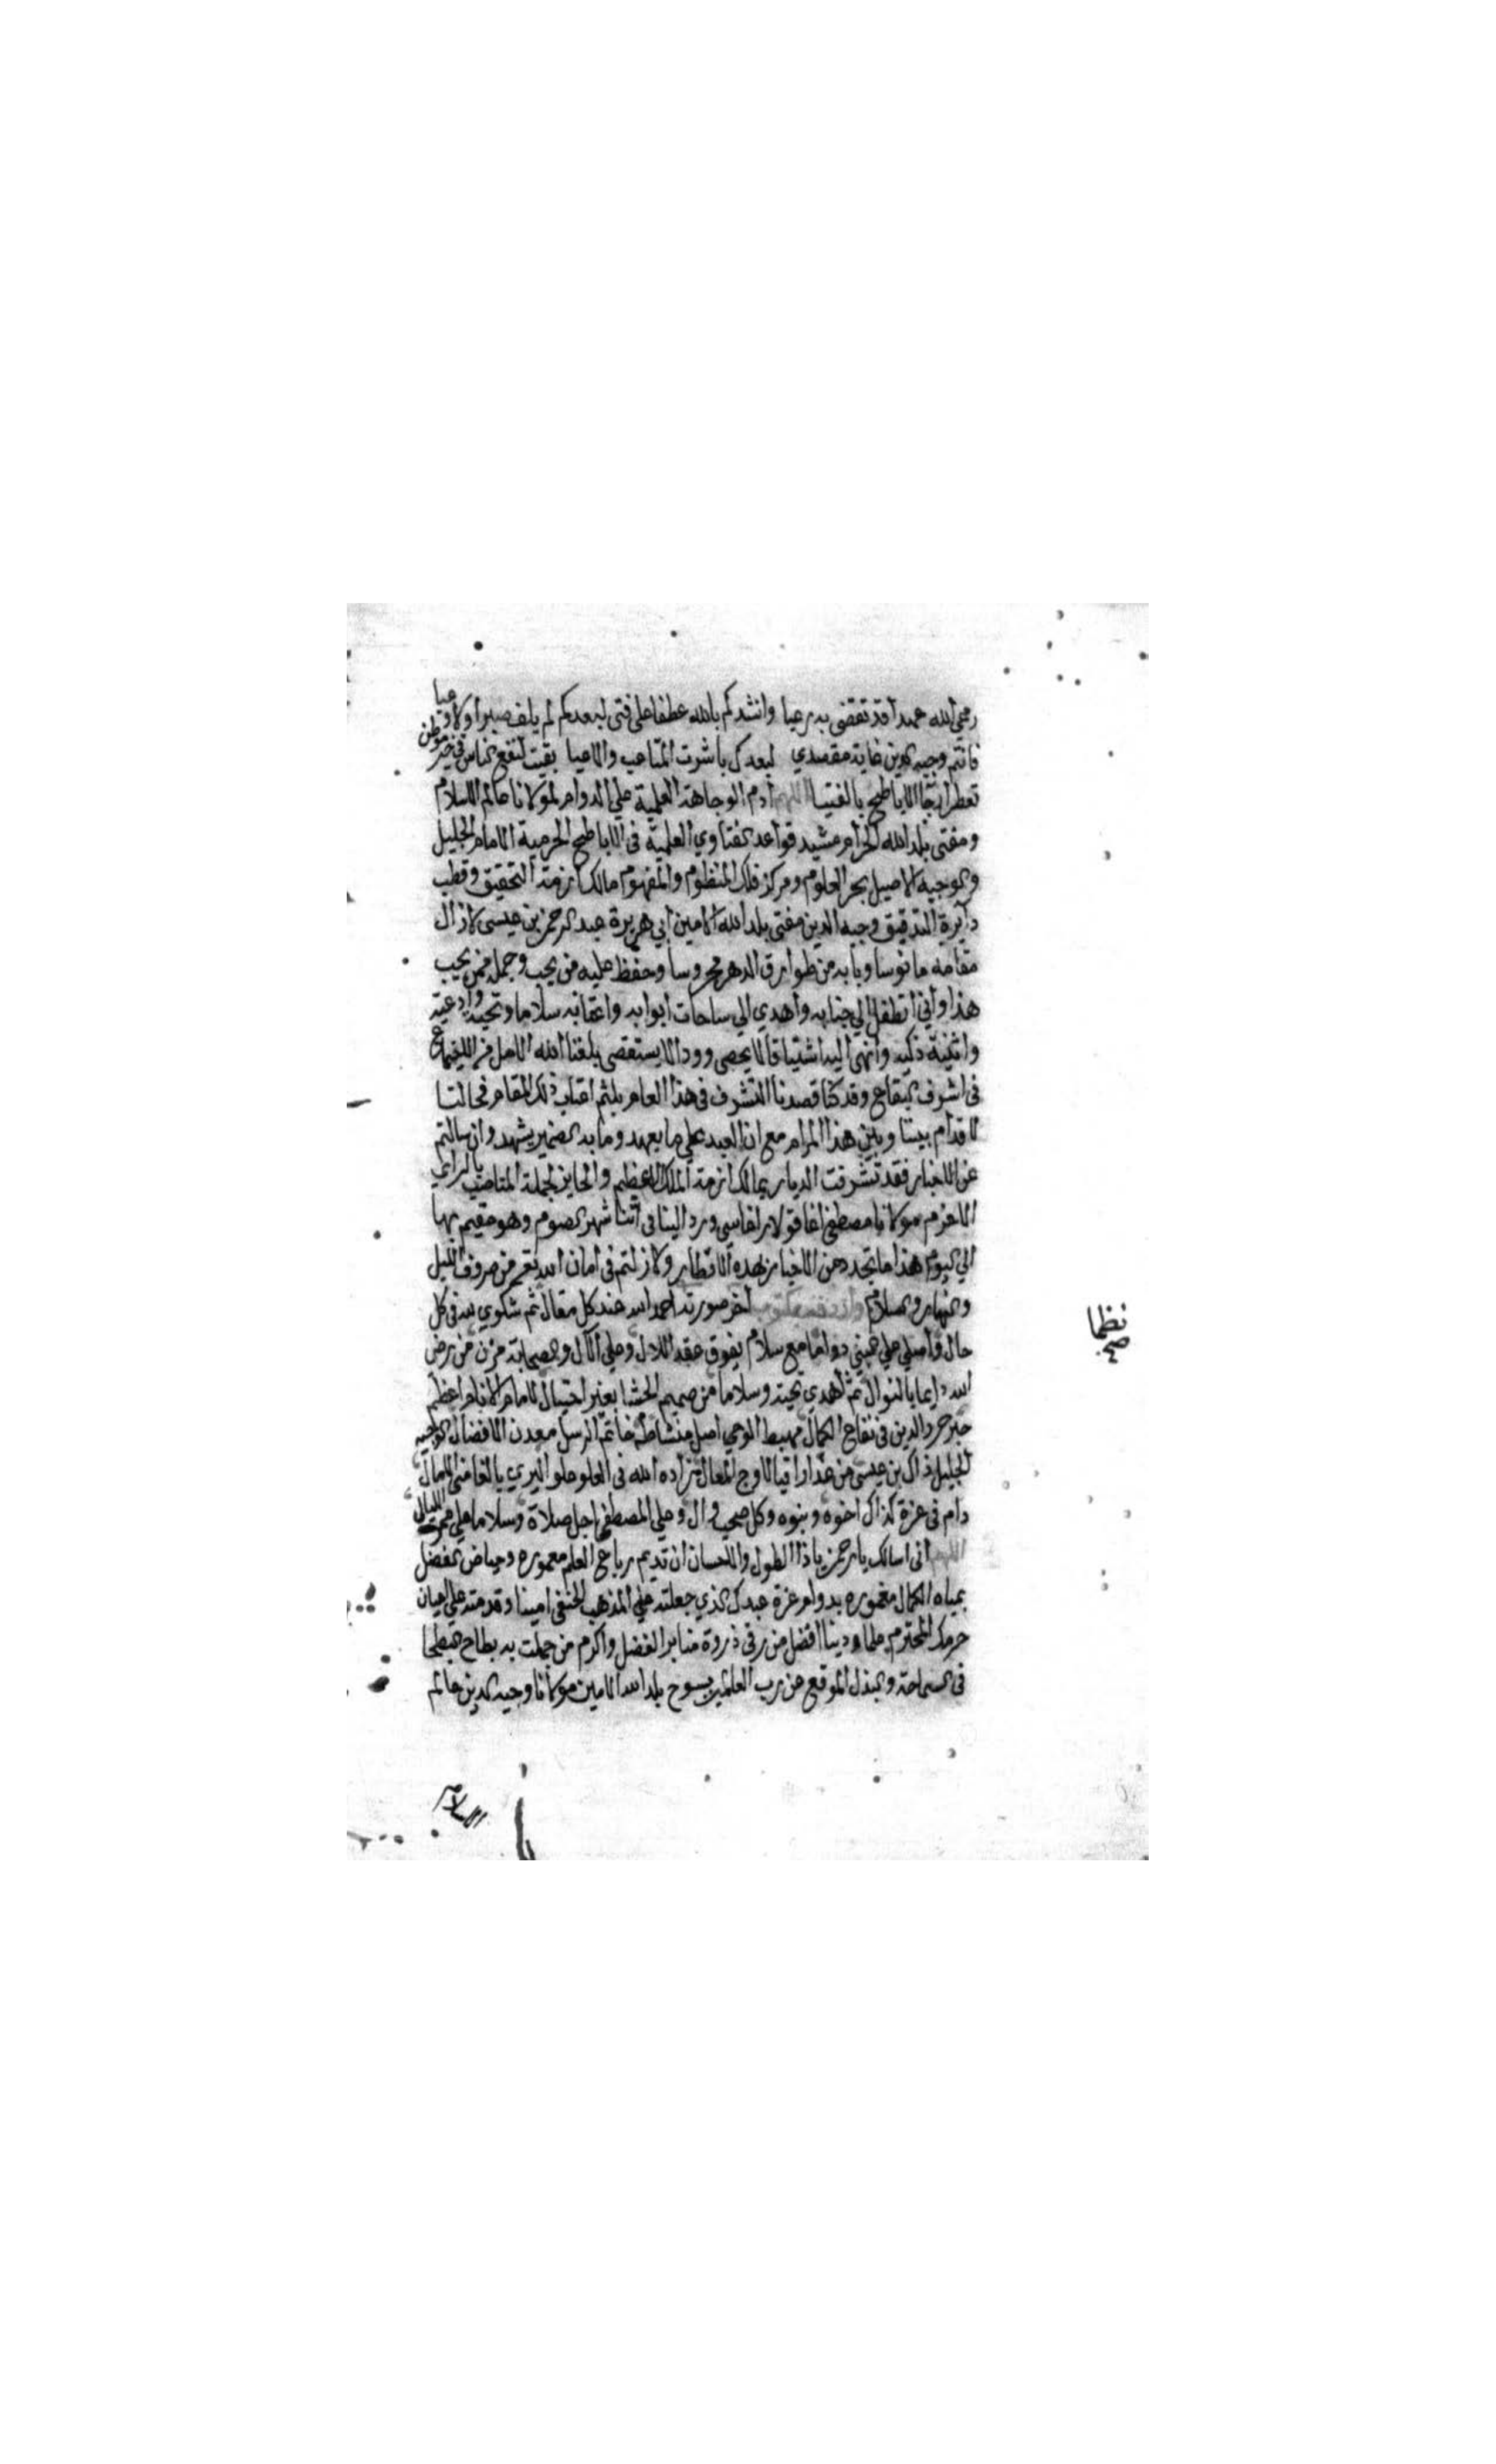 رعى الله عهدا قد تقضى به رعيا وانشدكم بالله عطفا على فتى لبعدكم لم يلف صبرا ولا وعيا
فانتم وجيه الدين غاية مقصدي لبعدك باشرت المتاعب والاعيا بقيت لنفع الناس في خير موطن
تعطر ارجا الاباطح بالفتيا اللهم أدم الوجاهة العلمية على الدوام لمولانا عالم الاسلام
ومفتى بلد الله الحرام مشيد قواعد الفتاوي العلمية في الاباطح الحرمية الامام الجليل
والوجيه الاصيل بحر العلوم ومركز فلك المنظوم والمفهوم مالك ازمة التحقيق وقطب
دايرة التدقيق وجيه الدين مفتى بلد الله الامين أبي هريرة عبد الرحمن بن عيسى لا زال
مقامه مانوسا وبابه من طوارق الدهر محروسا وحفظ عليه من يحب وجمله ممن يحب
هذا وأني أتطفل الي جنابه وأهدي الي ساحات أبوابه واعتابه سلاما وتحية وادعية
واثنية ذكية وانهى اليه اشتياقا لا يحصى وودا لا يستقصى بلغنا الله الامل من الاجتماع
في اشرف البقاع وقد كنا قصدنا التشرف في هذا العام بلثم اعتاب ذلك المقام فحالت
الاقدام بيننا وبين هذا المرام مع ان العبد علي ما يعهد وما به الضمير يشهد وان سالتم
عن الاخبار فقد تشرفت الديار بمالك ازمة الملك الاعظم والحايز لجملة المناصب بالراي
الاعزم مولانا مصطفى اغا قولار اغاسي ورد الينا في أثنا شهر الصوم وهو مقيم بها
الي اليوم هذا ما تجدد من الاخبار بهذه الاقطار ولا زلتم في أمان الله تع من صروف الليل
والنهار والسلام وأردفه بمكتوب أخر صورته احمد الله عند كل مقال ثم شكوي لله في كل
حال وأصلي على النبي دواما مع سلام يفوق عقد اللال وعلى الآل والصحابة من
الله دايما بالنوال ثم أهدي تحية وسلاما من صميم الحشا بغير احتيال للامام الانام اعظم
حبر الدين في الكمال مهبط الوحي اصل منشاطه خاتم الرسل معدن الافضال الوجيه
الجليل ذاك بن عيسى من غدا راقيا لاوج المعالي زاده الله في العلو علو البري بالغا منى الامال
دام في عزة كذاك اخوه وبنوه وكل صحب وال وعلى المصطفى اجل صلاة وسلاما على ممر الليال
اللهم انى اسالك يارحمن ياذا الطول والاحسان ان تديم رباع العلم معموره وحياض الفضل
بمياه الكمال مغموره بدوام عزة عبدك الذي جعلته على المذهب الحنفي امينا وقدمته على اعيان
حرمك المحترم علما ودينا افضل من رقى ذروة منابر الفضل واكرم من جملت به بطاح البطحا
في السماحة والبذل الموقع عن رب العلمين بسوح بلد الله الامين مولانا وجيه الدين عالم
نظما
صح
الاسلام